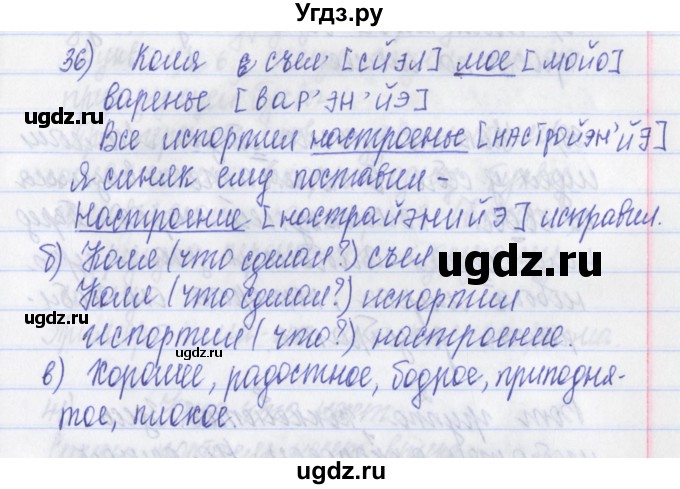 Угдз.ру
36) Коля с съел [сйэл] мое [мойо]
варенье [вар'эн'йэ]
Все испортил настроенье [настройэн'йэ]
Я синяк ему поставил –
Настроение [настрайэнийэ] исправил.
б) Коля (что сделал?) съел
Коля (что сделал?) испортил
испортил (что?) настроение.
в) Хорошее, радостное, бодрое, приподня-
тое, плохое.
ugdz.ru
ugdz.ru
ugdz.ru
ugdz.ru
ugdz.ru
ugdz.ru
ugdz.ru
ugdz.ru